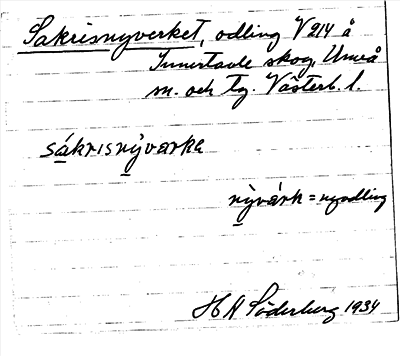 Sakrisnyverket, odling V 214 å
Innertavle skog, Umeå
sn. och tg. Västerb. l.
sákrısnỳvarka
nỳvárk = nyodling
H A Söderberg 1934